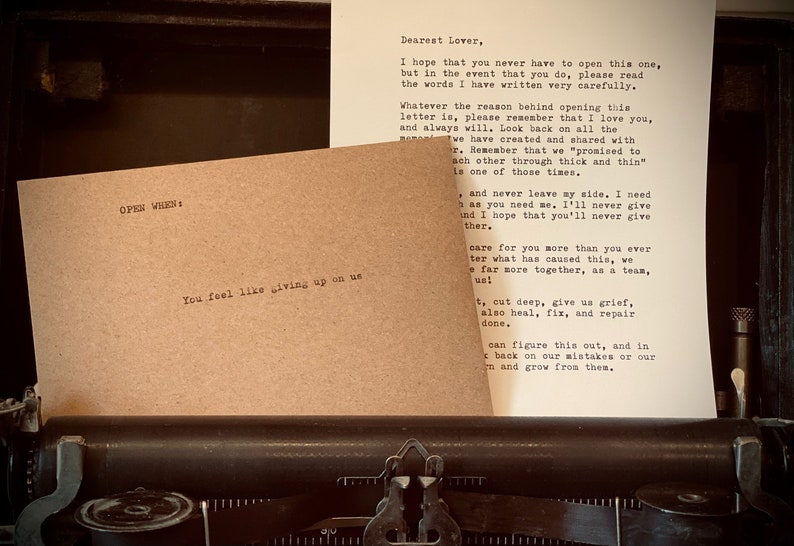 Dearest Lover,
I hope that you never have to open this one,
but in the event that you do, please read
the words I have written very carefully.
Whatever the reason behind opening this
letter is, please remember that I love you,
and always will. Look back on all the
we have created and shared with
Remember that we "promised to
each other through thick and thin"
is one of those times.
, and never leave my side. I need
as you need me. I'll never give
and I hope that you'll never give
care for you more than you ever
what has caused this, we
far more together, as a team,
us!
, cut deep, give us grief,
also heal, fix, and repair
done.
can figure this out, and in
back on our mistakes or our
and grow from them.
OPEN WHEN:
You feel like giving up on us